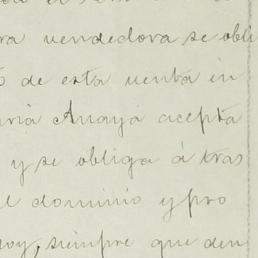 ra vendedora se obli
de esta venta in
Anaya acepta
y se obliga á tras
el dominio y pro
siempre que den